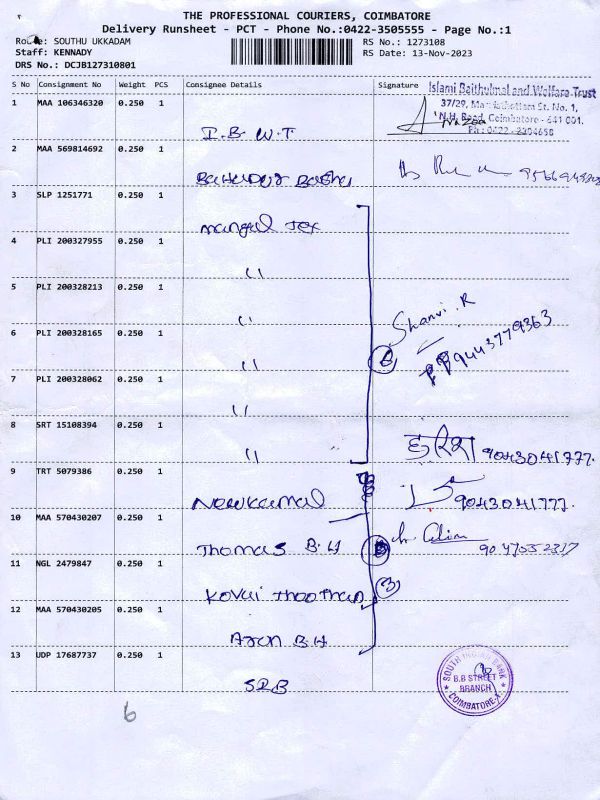 THE PROFESSIONAL COURIERS, COIMBATORE
Delivery Runsheet - PCT - Phone No.:0422-3505555 - Page No.:1
Route: SOUTHU UKKADAM
RS No.: 1273108
Staff: KENNADY
RS Date: 13-Nov-2023
DRS No.: DCJB127310801
S No Consignment No Weight PCS Consignee Details Signature
Islami Baithulmal and Welfare Trust
37/29, St. No. 1,
N.H. Road, Coimbatore - 641 001.
Ph : 0422 - 2304658
1 MAA 106346320 0.250 1
I.B.W.T
2 MAA 569814692 0.250 1
3 SLP 1251771 0.250 1
mangal Tex
4 PLI 200327955 0.250 1
"
5 PLI 200328213 0.250 1
"
Shanvi . R
6 PLI 200328165 0.250 1
" 6 9443779363
7 PLI 200328062 0.250 1
"
8 SRT 15108394 0.250 1
" हरिश 9043041777.
9 TRT 5079386 0.250 1
Newkamal 9043041777.
10 MAA 570430207 0.250 1
Thomas B.H
11 NGL 2479847 0.250 1
Kovai 3
12 MAA 570430205 0.250 1
Arun B.H
13 UDP 17687737 0.250 1
SIB
SOUTH INDIAN BANK
B.B STREET
BRANCH
COIMBATORE-1
6